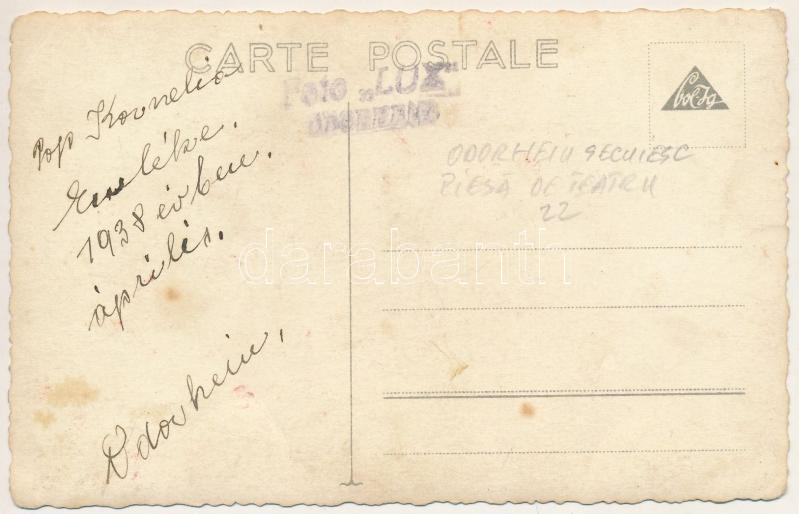 CARTE POSTALE
Foto „LUX"
Pop Kornelia
Emléke.
1938 évben.
április.
Odorheiu,
ODORHEIU SECUIESC
PIESĂ DE TEATRU
22
darabanth